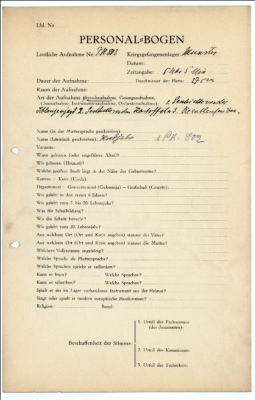 Lfd. Nr
PERSONAL-BOGEN
Lautliche Aufnahme Nr.: Kriegsgefangenenlager: Munster
Datum:
Zeitangabe: 5 Uhr 5 Min
Dauer der Aufnahme: Durchmesser der Platte: 27 cm
Raum der Aufnahme:
Art der Aufnahme (Sprechaufnahme, Gesangsaufnahme,
Choraufnahme, Instrumentenaufnahme, Orchesteraufnahme):
Name (in der Muttersprache geschrieben):
Name (lateinisch geschrieben):
Vorname:
Wann geboren (oder ungefähres Alter)?
Wo geboren (Heimat)?
Welche größere Stadt liegt in der Nähe des Geburtsortes?
Kanton – Kreis (Ujedz)
Department – Gouvernement (Gubernija) – Grafschaft (County):
Wo gelebt in den ersten 6 Jahren?
Wo gelebt vom 7. bis 20. Lebensjahr?
Was für Schulbildung?
Wo die Schule besucht?
Wo gelebt vom 20. Lebensjahr?
Aus welchem Ort (Ort und Kreis angeben) stammt der Vater?
Aus welchem Ort (Ort und Kreis angeben) stammt die Mutter?
Welchem Volksstamm angehörig?
Welche Sprache als Muttersprache?
Welche Sprachen spricht er außerdem?
Kann er lesen? Welche Sprachen?
Kann er schreiben? Welche Sprachen?
Spielt er ein im Lager vorhandenes Instrument aus der Heimat?
Singt oder spielt er modern europäische Musikweisen?
Religion: Beruf:
Beschaffenheit der Stimme:
1. Urteil des Fachmannes
(des Assistenten):
2. Urteil des Kommissars:
3. Urteil des Technikers: